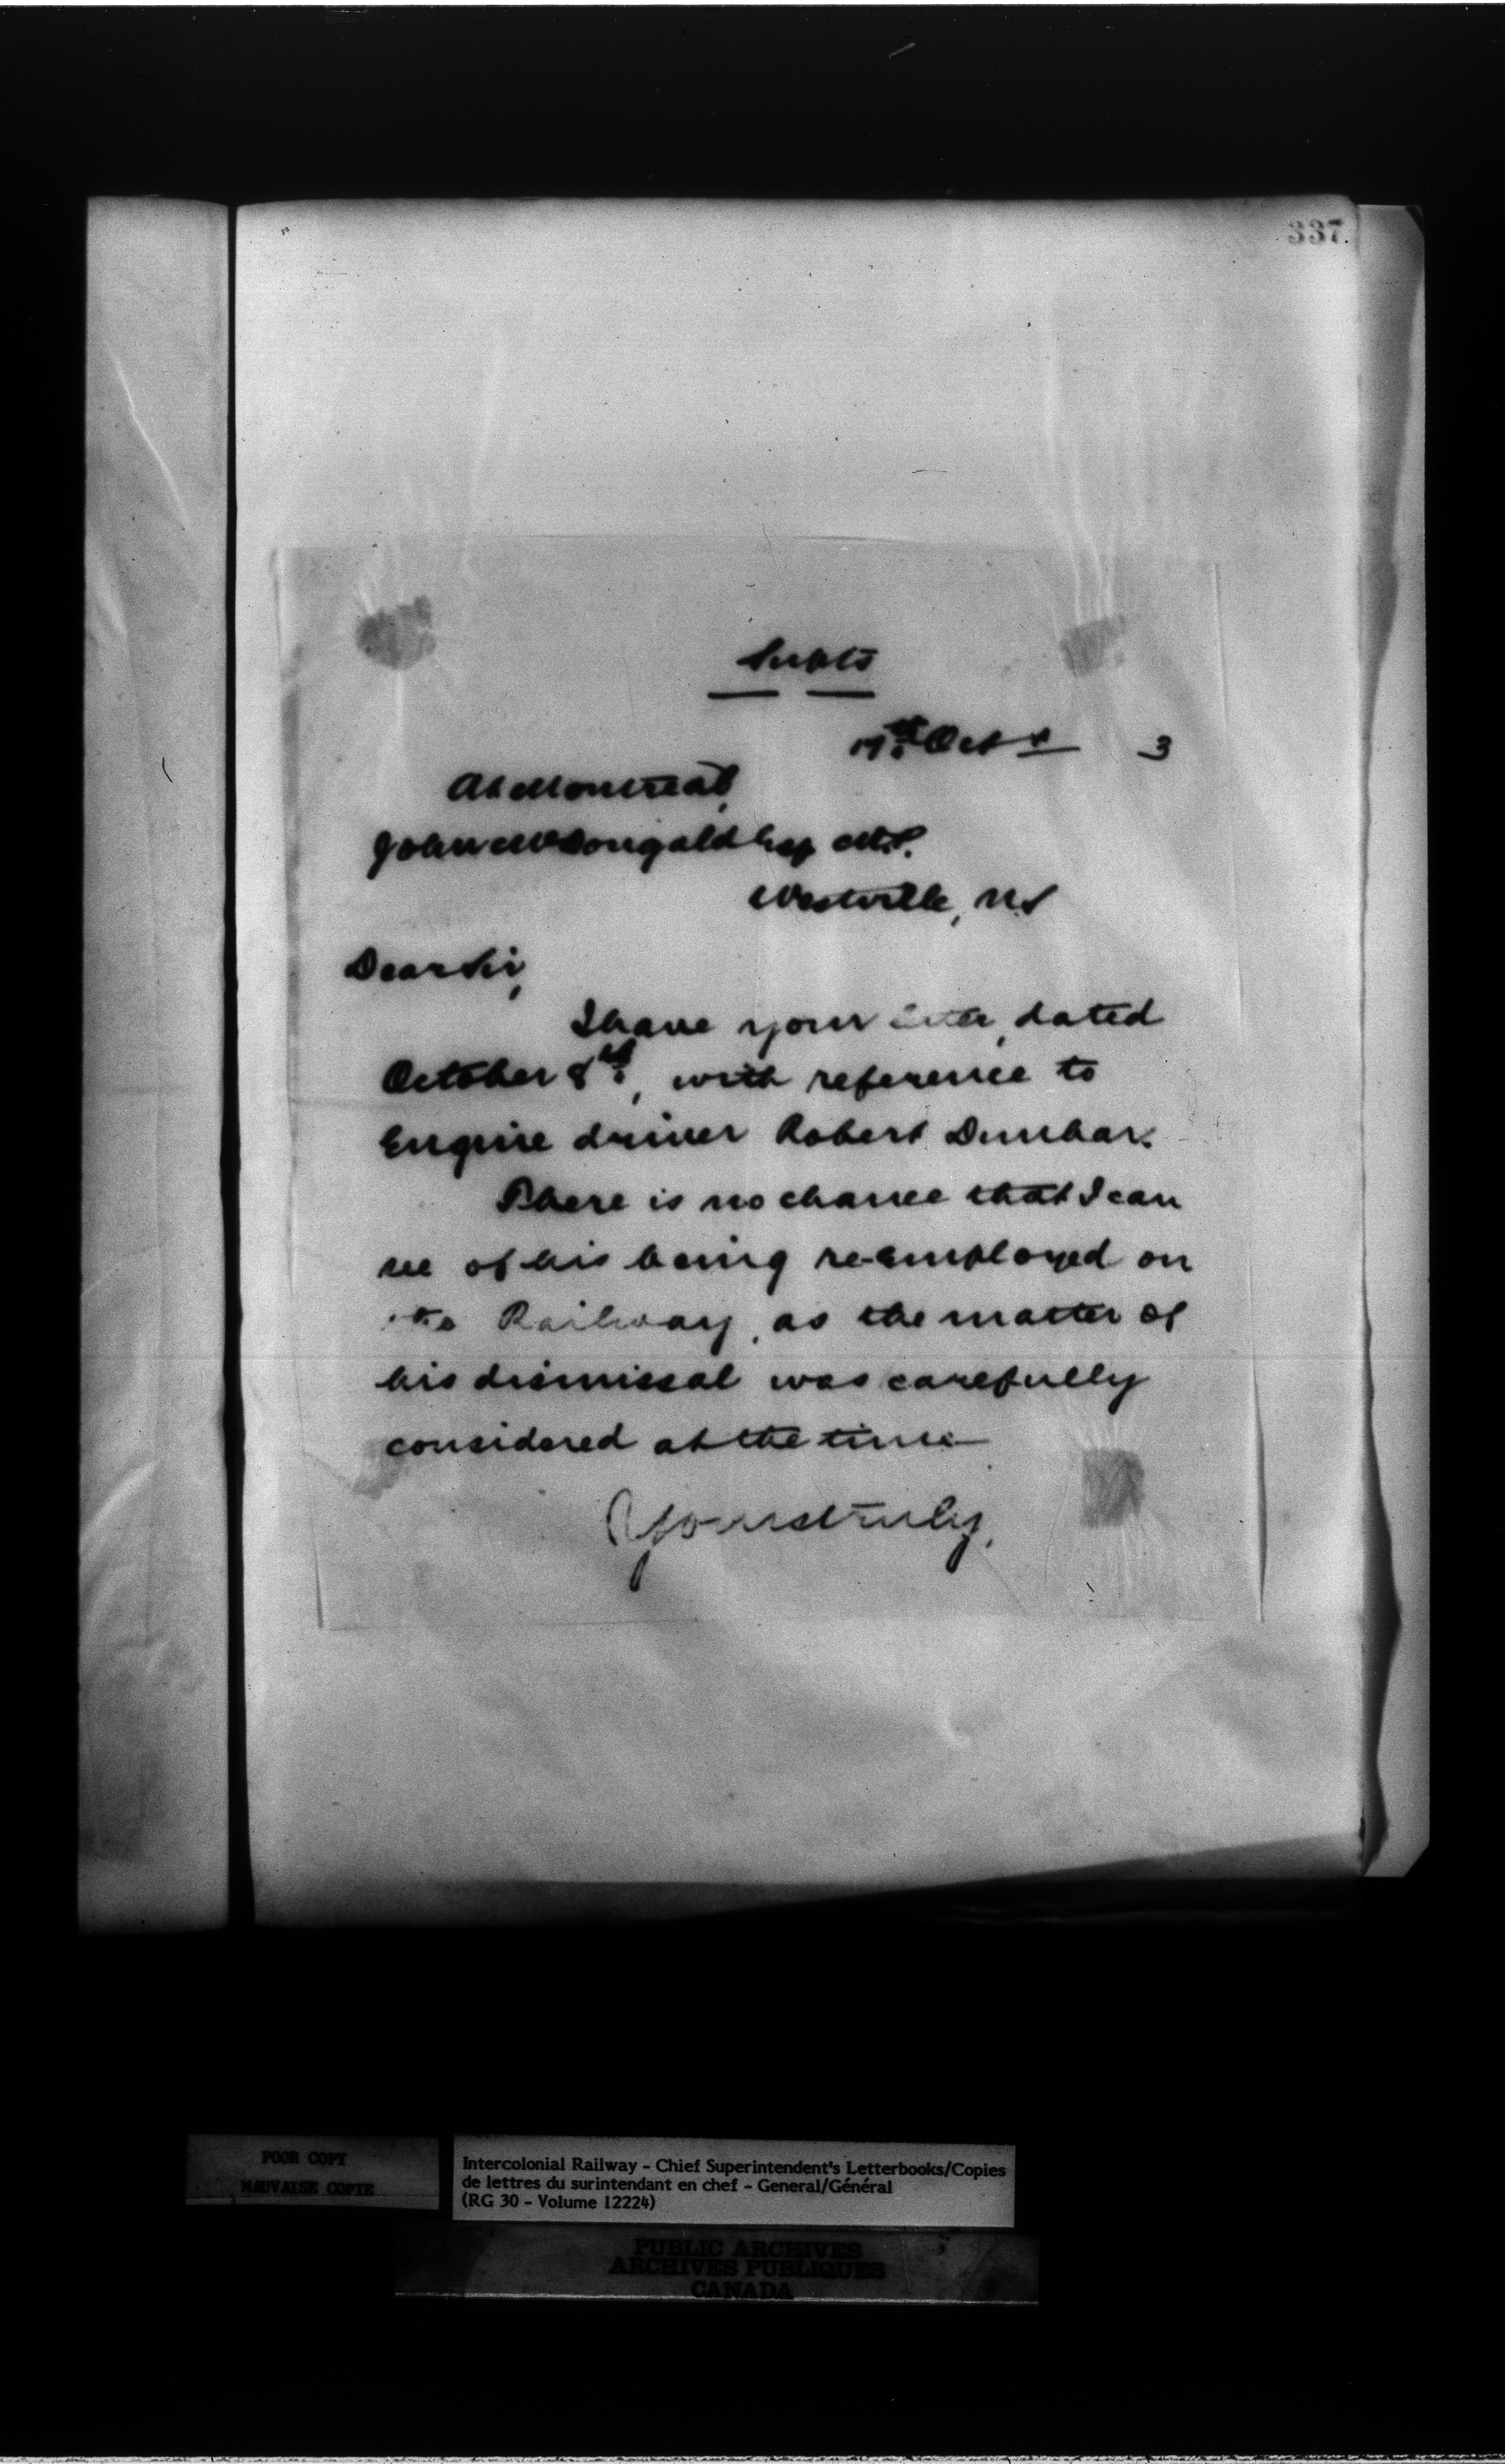 337.
Supts
17th Oct 3
At Montreal,
John McDougald Esq M.P.
Westville, N.S
Dear Sir,
I have your letter, dated
October 8th, with reference to
Engine driver Robert Dunbar.
There is no chance that I can
see of his being re-employed on
the Railway, as the matter of
his dismissal was carefully
considered at the time
Yours truly,
POOR COPY
MAUVAISE COPIE
Intercolonial Railway - Chief Superintendent's Letterbooks/Copies
de lettres du surintendant en chef - General/Général
(RG 30 - Volume 12224)
PUBLIC ARCHIVES
ARCHIVES PUBLIQUES
CANADA